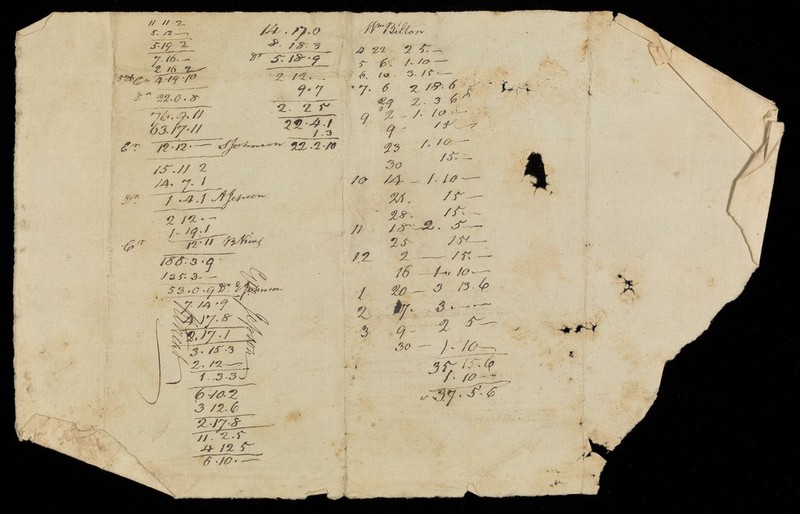 11 11 2
5. 12 —
5.19 2
7.16.—
2 16 2
4.19.10
22.0.8
76.9.11
63.17.11
Cr 12.12.— S Johnson
15.11 2
14. 7. 1
1.4.1 A Jepson
2 12.—
1.19.1
Cr 12.11 B King
188.3.9
135.3.—
53.0.9 Dr Johnson
7.14.9
4.17.8
2.17.1
3.15.3
2.12—
1.3.3
Jepson
6.10.2
3 12.6
2.17.8
11. 2.5
4 12 5
6.10.—
14.17.0
8.18.3
Dr 5.18.9
2 12..
9.7
2. 2 5
22.4.1
1.3
22.2.10
Wm Bilton
4 22 2 5.—
5 6. 1.10—
6. 10 3.15—
7. 6 2 18.6
29 2.3 6
9 2 — 1.10—
9 — 15
23 1.10—
30 15.—
10 14 — 1.10—
21. 15—
28. 15.—
11 18 — 2. 5—
25 15—
12 2 — 15.—
16 1.10—
1 20 — 3 13.6
2 17. 3.—
3 9— 2 5—
30 — 1.10—
35 15.6
1.10—
37.5.6